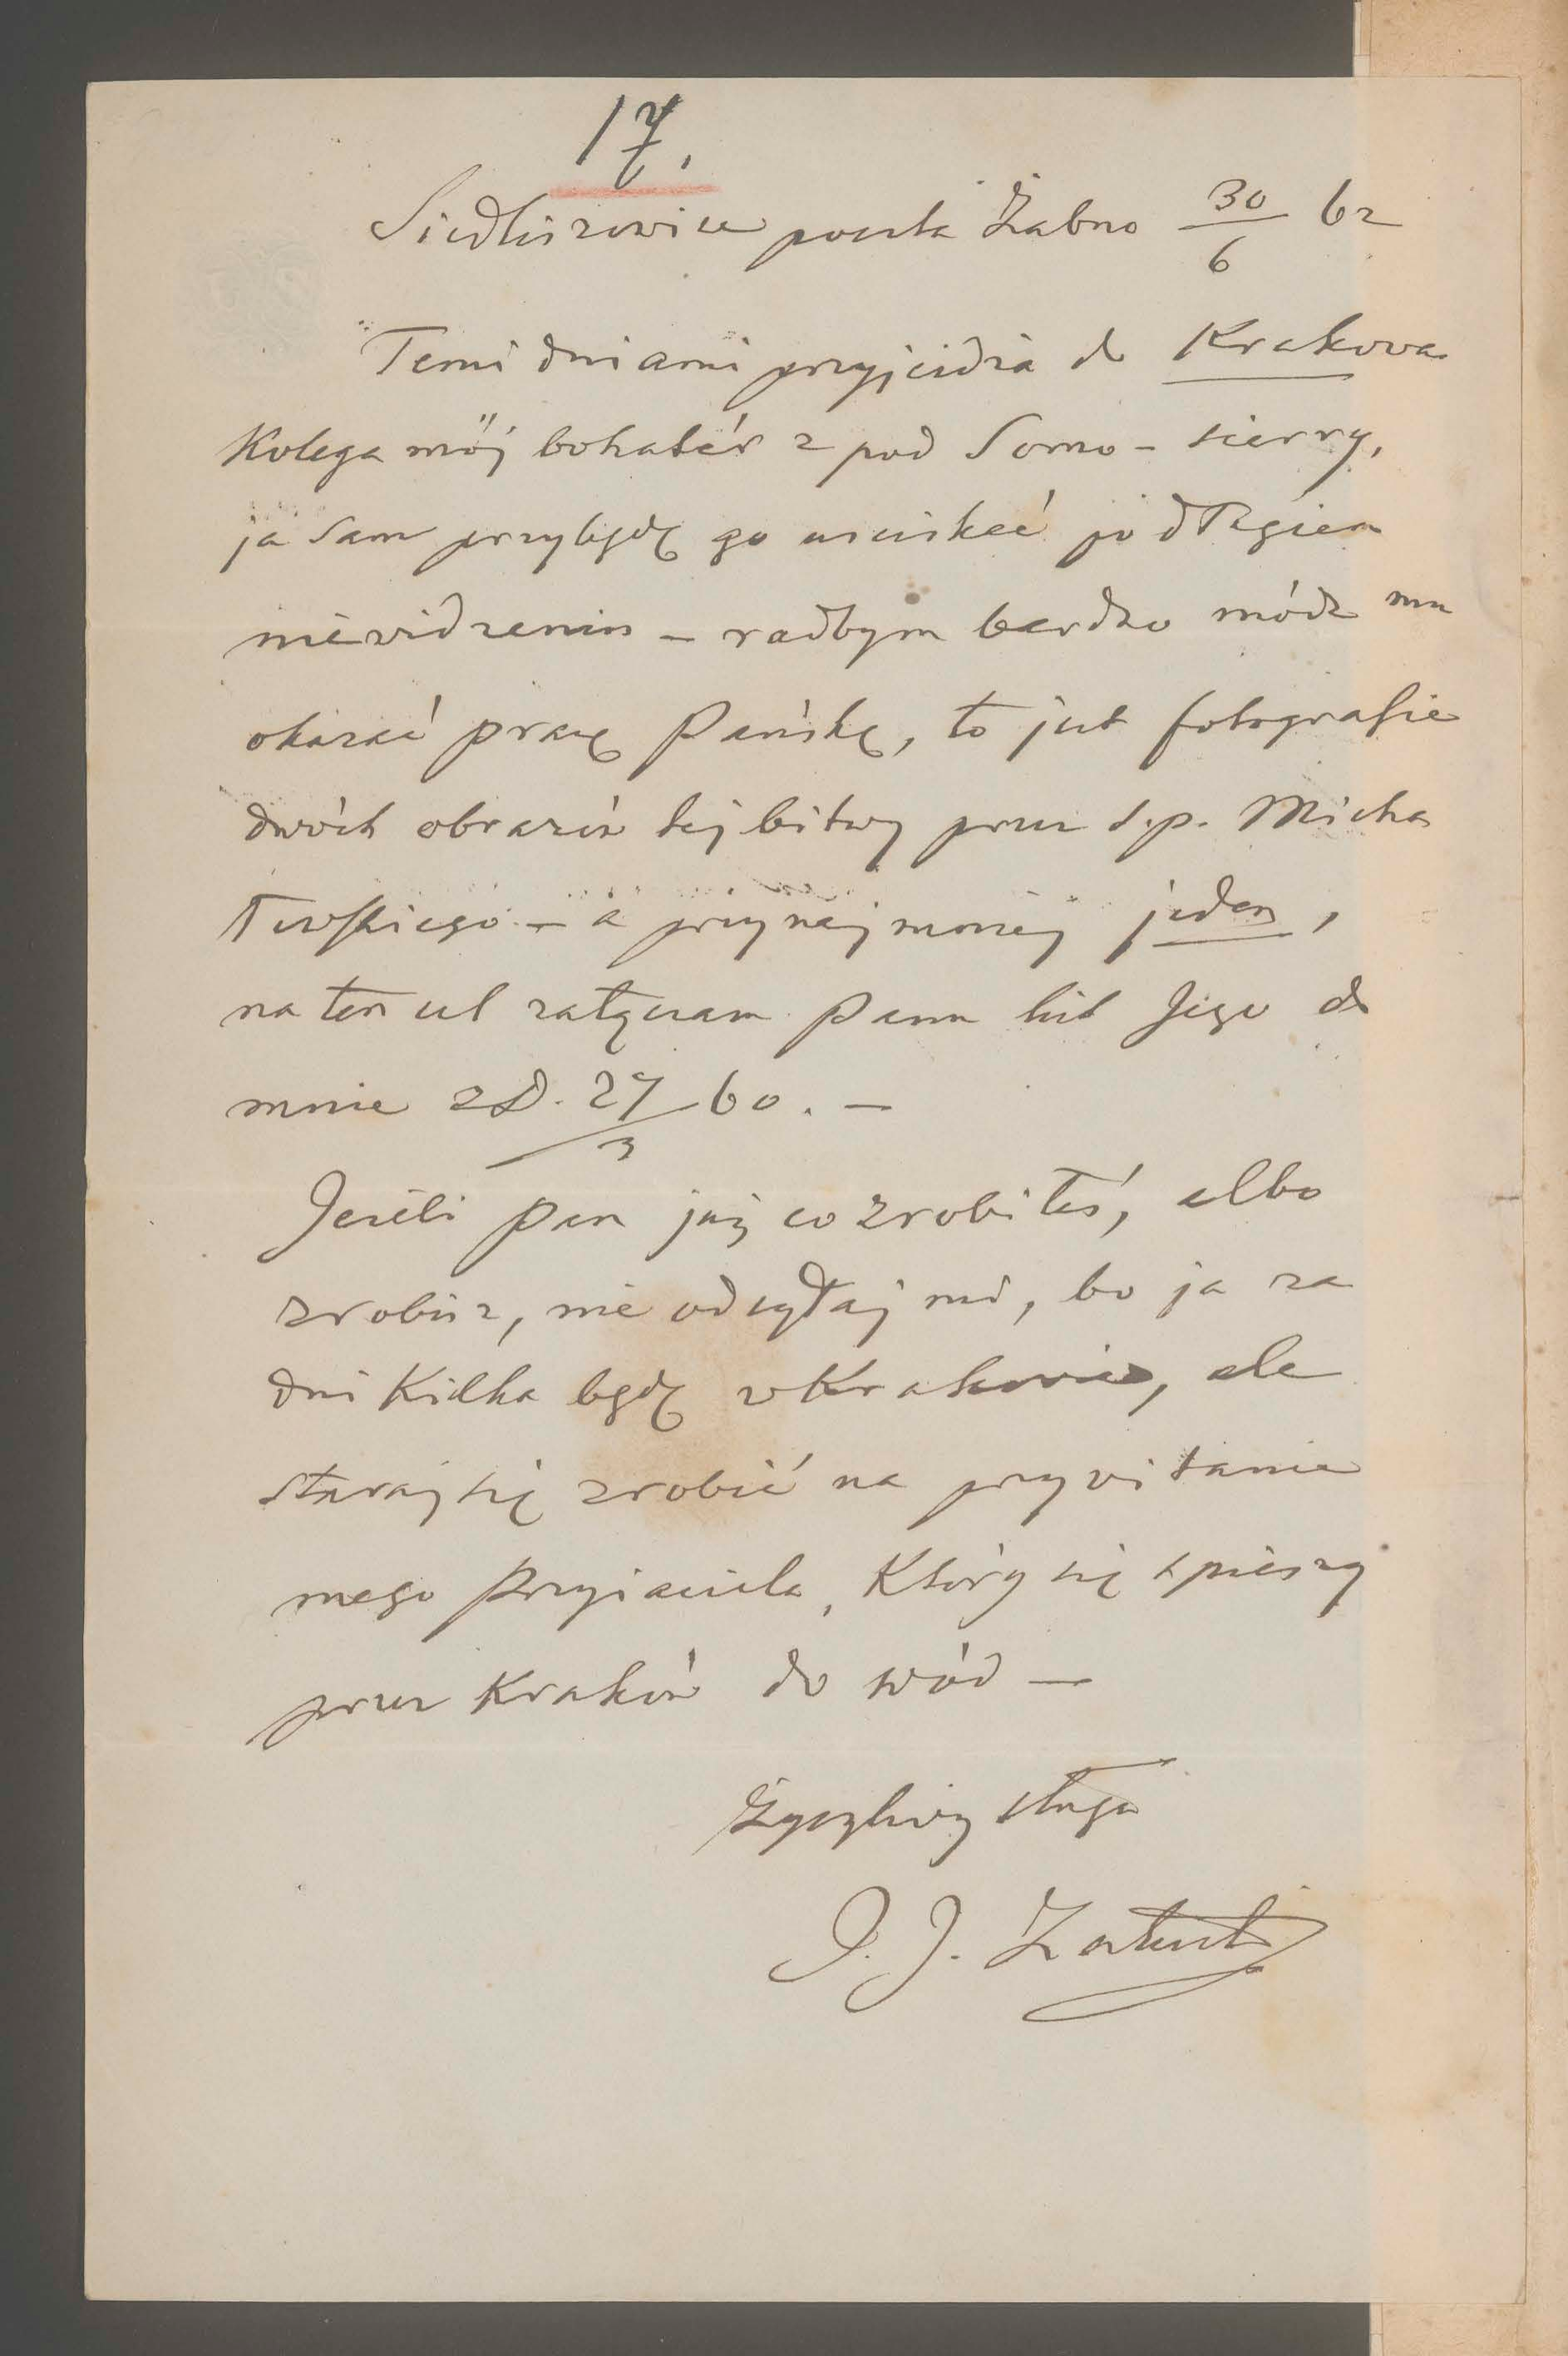 17.
Siedliszowice poczta Żabno 30/6 62
Temi dniami przyjeżdża do Krakowa
Kolega mój bohatér z pod Somo-sierry,
ja sam przybędę go uściskać po długiem
niewidzeniu – radbym bardzo módz mu
okazać pracę Pańską, to jest fotografie
dwóch obrazów tej bitwy przez ś.p. Micha
łowskiego – a przynajmniej jeden,
na ten cel załączam Panu list Jego do
mnie z D. 27/3 60. –
Jeżeli Pan już co zrobiłeś, albo
zrobisz, nie odsyłaj mi, bo ja za
dni Kilka będę w Krakowie, ale
staraj się zrobić na przywitanie
mego Przyjaciela, Który się spieszy
przez Kraków do wód –
Życzliwy sługa
J. Załuski